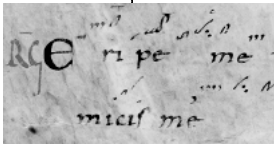 RG E ri pe me
micis me